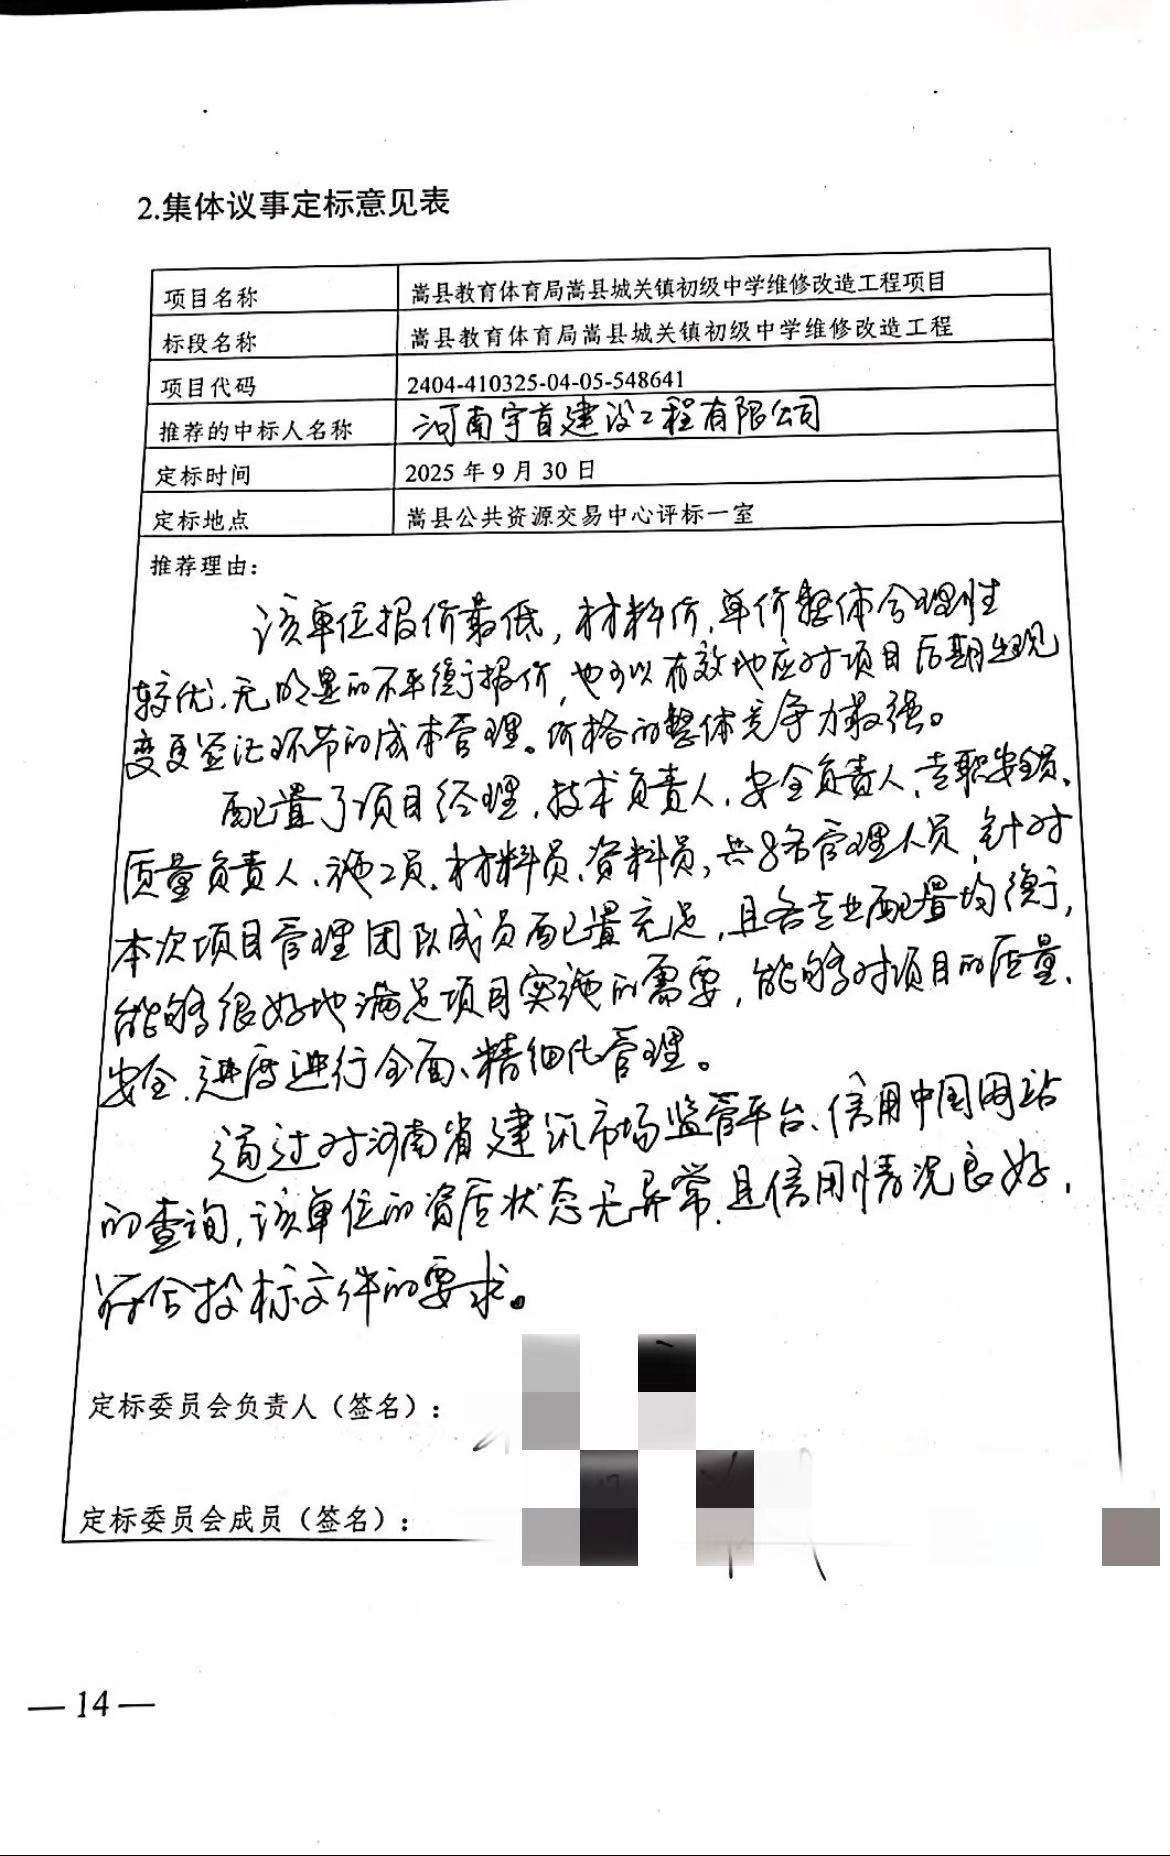 2.集体议事定标意见表
项目名称 嵩县教育体育局嵩县城关镇初级中学维修改造工程项目
标段名称 嵩县教育体育局嵩县城关镇初级中学维修改造工程
项目代码 2404-410325-04-05-548641
推荐的中标人名称 河南宇首建设工程有限公司
定标时间 2025 年 9 月 30 日
定标地点 嵩县公共资源交易中心评标一室
推荐理由：
该单位报价最低，材料价、单价整体合理性
较优、无明显的不平衡报价，也可以有效地应对项目后期出现
变更签证环节的成本管理。价格的整体竞争力最强。
配置了项目经理、技术负责人、安全负责人、专职安全员、
质量负责人、施工员、材料员、资料员，共8名管理人员，针对
本次项目管理团队成员配置充足，且各专业配置均衡，
能够很好地满足项目实施的需要，能够对项目的质量、
安全、进度进行全面、精细化管理。
通过对河南省建筑市场监管平台、信用中国网站
的查询，该单位的资质状态无异常，且信用情况良好，
符合投标文件的要求。
定标委员会负责人（签名）：
定标委员会成员（签名）：
—14—